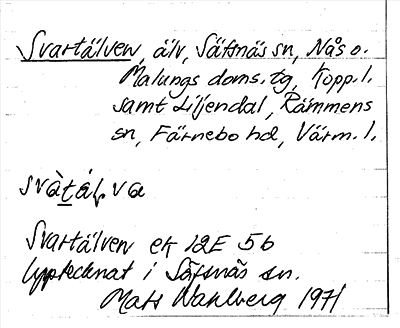 Svartälven, älv, Säfsnäs sn, Nås o.
Malungs doms. tg, Kopp. l.
samt Liljendal, Rämmens
sn, Färnebo hd, Värm. l.
svàtálva
Svartälven ek 12E 5b
Upptecknat i Säfsnäs sn.
Mats Wahlberg 1971